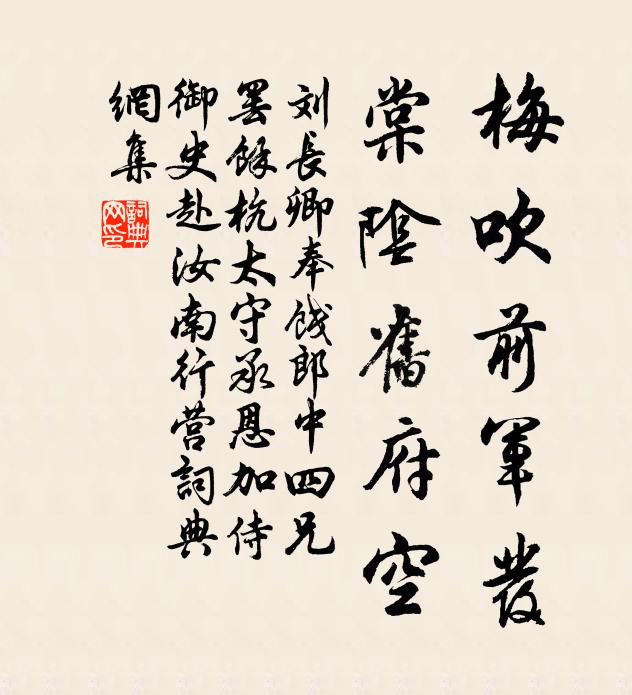 梅吹前軍發
棠陰舊府空
刘長卿奉餞郎中四兄
罢餘杭太守承恩加侍
御史赴汝南行营詞典
網集
詞典
网印